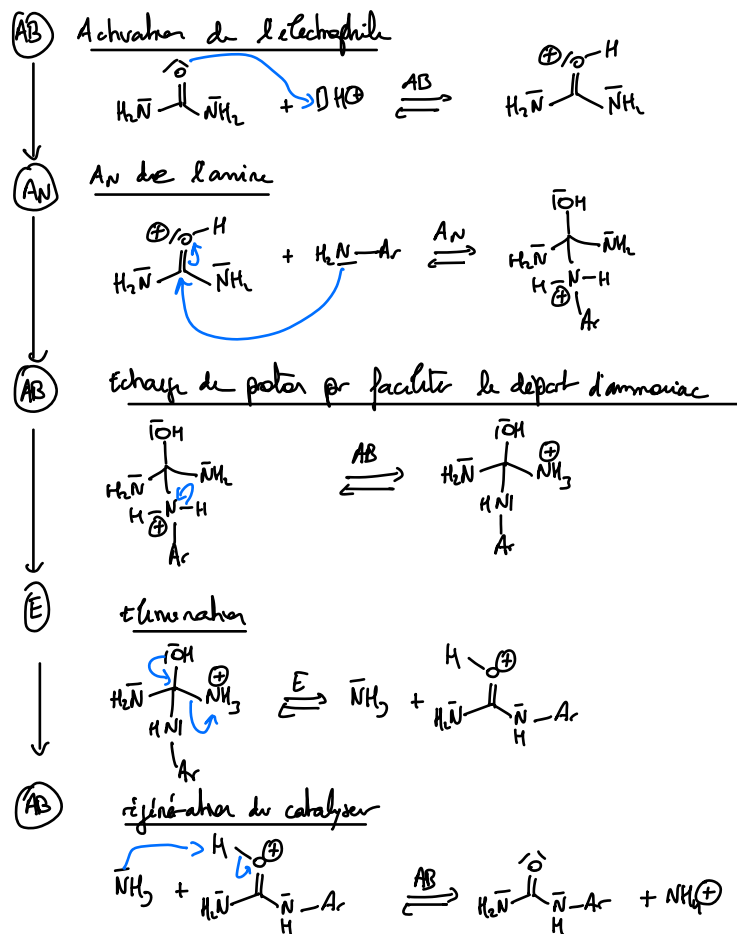 AB Activation de l'électrophile
O
H₂N NH₂ + H⊕ AB ⊕ O-H H₂N NH₂
AN AN de l'amine
⊕ O-H H₂N NH₂ + H₂N-Ar AN OH H₂N NH₂ H-N-H ⊕ Ar
AB Echange de proton pr faciliter le départ d'ammoniac
OH H₂N NH₂ H-N-H ⊕ Ar AB OH H₂N NH₃ ⊕ HN Ar
E Elimination
OH H₂N NH₃ ⊕ HN Ar E NH₃ + H O ⊕ H₂N N-Ar H
AB régénération du catalyseur
NH₃ + H O ⊕ H₂N N-Ar H AB O H₂N N-Ar H + NH₄⊕